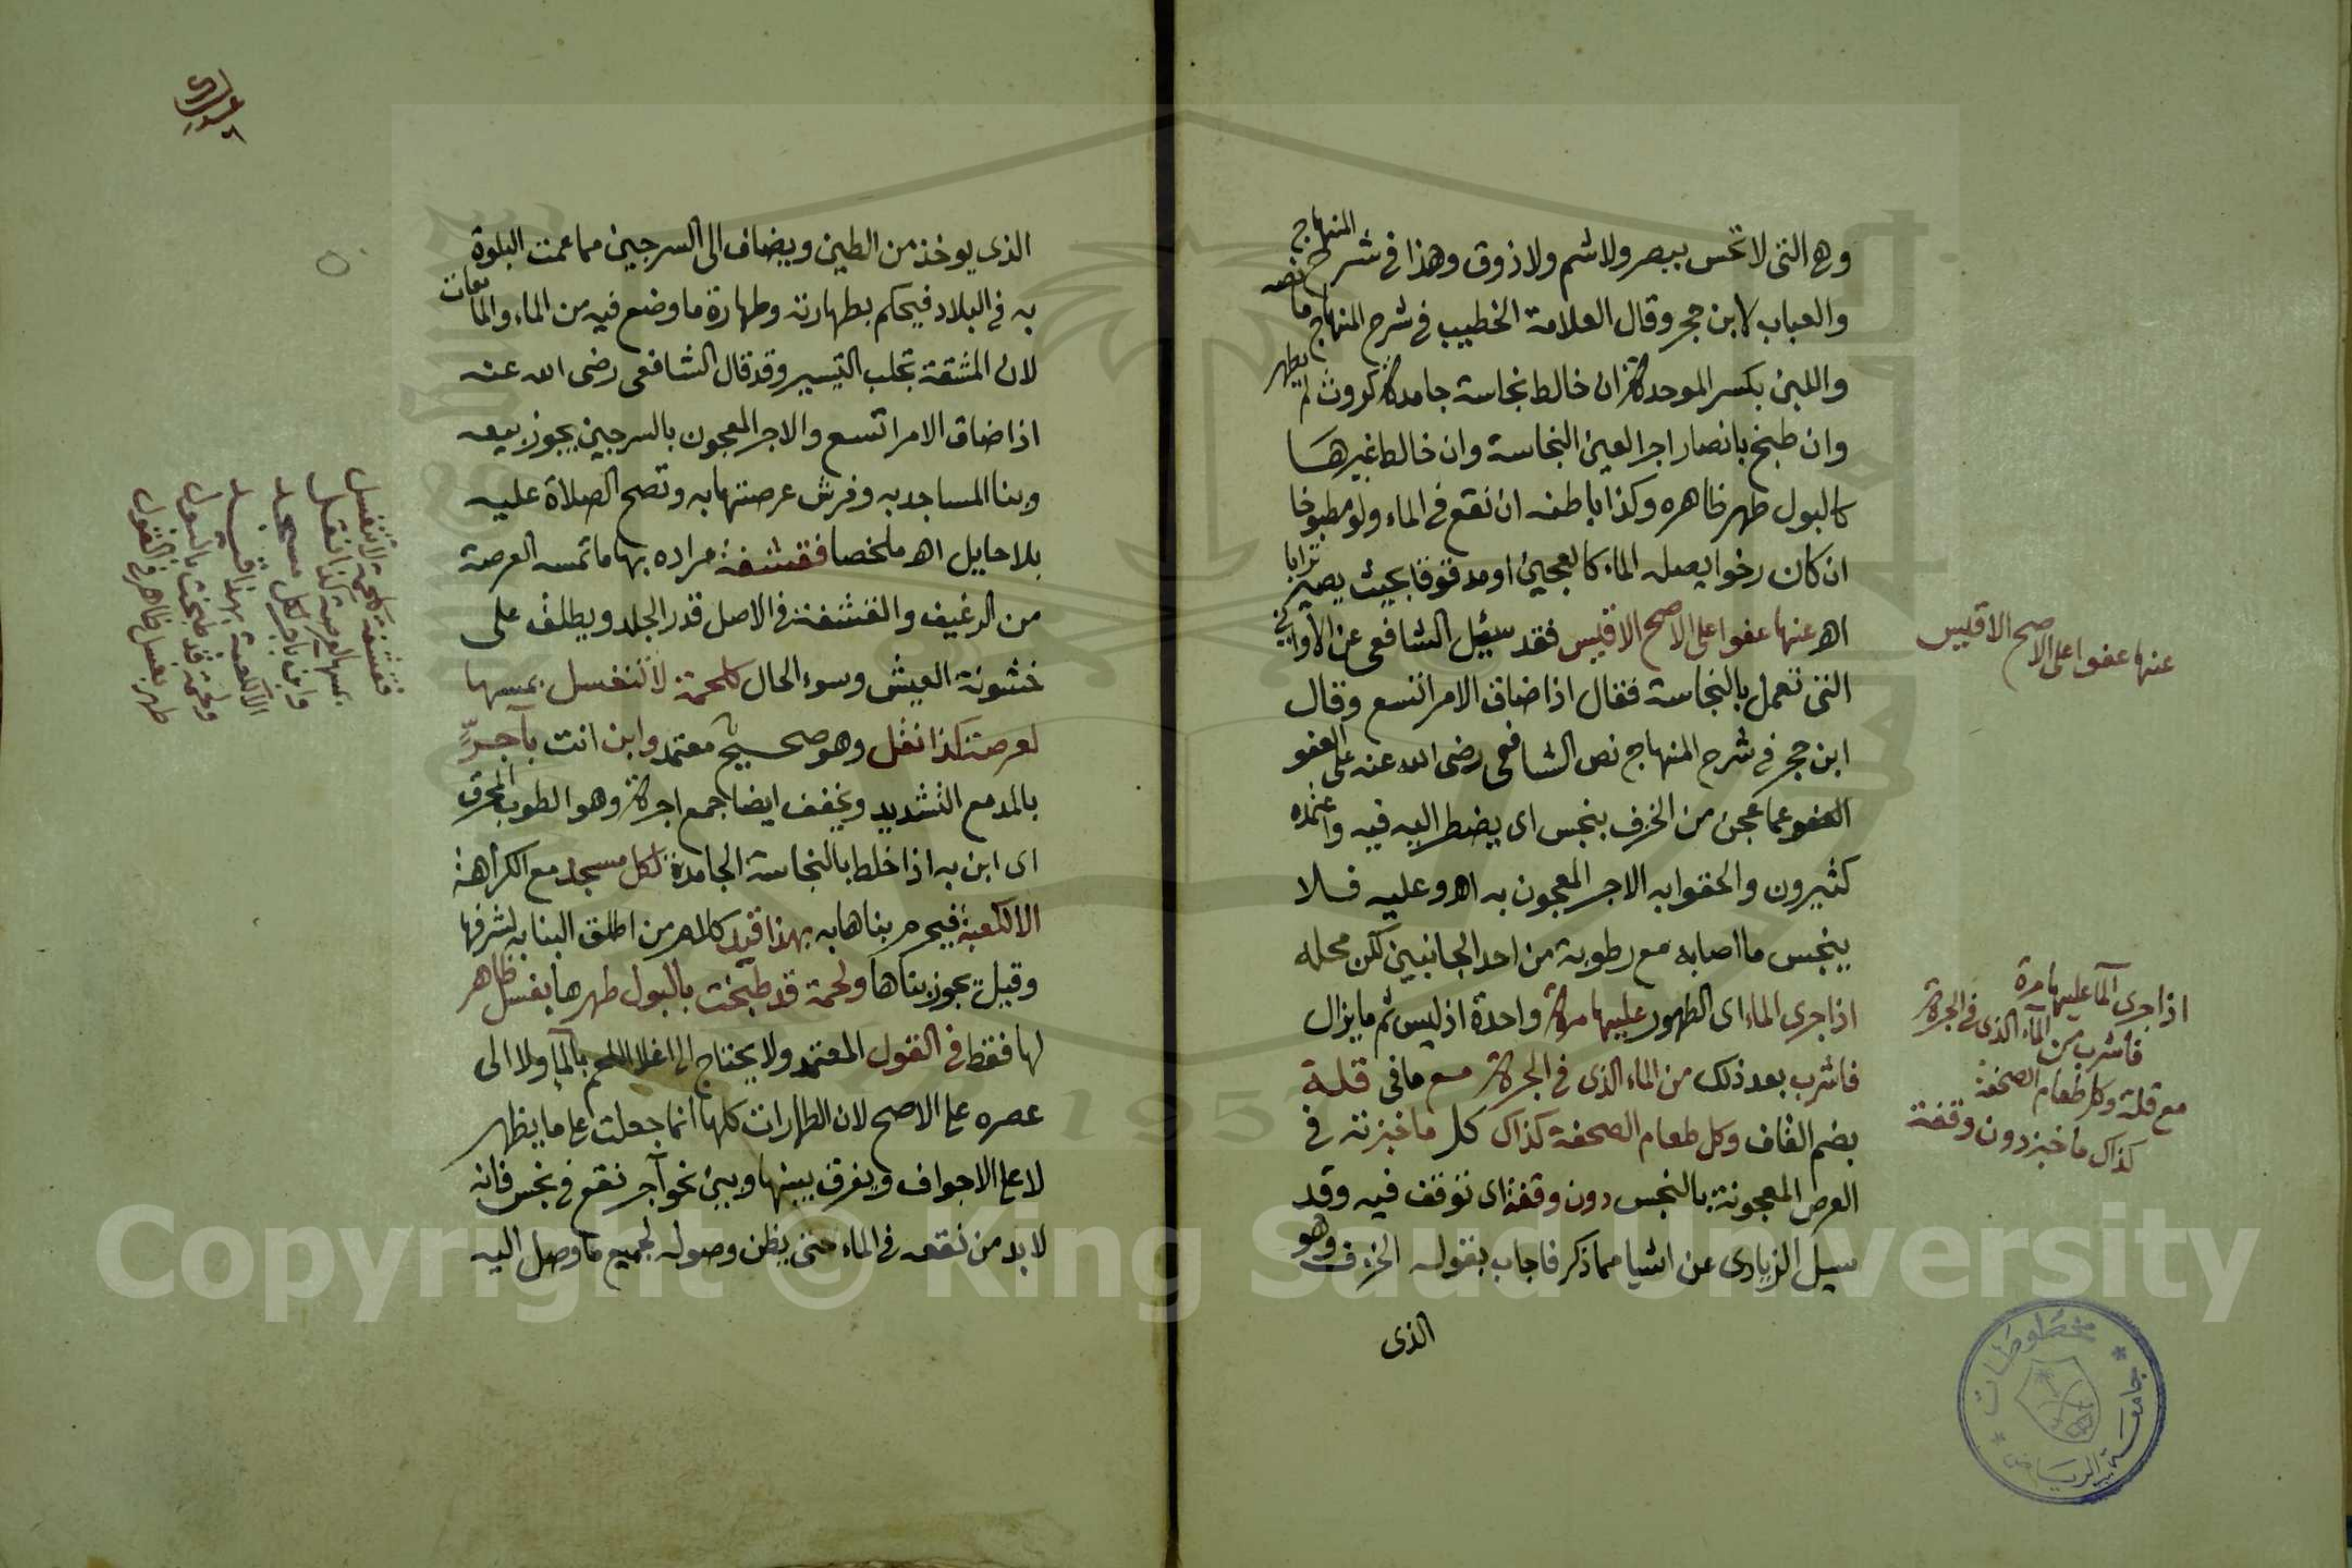 وهي التي لا تحس ببصر ولا شم ولا ذوق وهذا في شرح المنهاج
والعباب لابن حجر وقال العلامة الخطيب في شرح المنهاج ما نصه
واللبن بكسر الموحدة ان خالط نجاسة جامدة كروث لم يطهر
وان طبخ بان صار اجرا لعين النجاسة وان خالط غيرها
كالبول طهر ظاهره وكذا باطنه ان نقع في الماء ولو مطبوخا
ان كان رخوا يصله الماء كالعجين او مدقوقا بحيث يصير ترابا
اه عنها عفوا على الاصح الاقيس فقد سئل الشافعي عن الاواني
التي تعمل بالنجاسة فقال اذا ضاق الامر اتسع وقال
ابن حجر في شرح المنهاج نص الشافعي رضي الله عنه على العفو
العفو عما عجن من الخزف بنجس اي يضطر اليه فيه واعتمده
كثيرون والحقوا به الاجر المعجون به اه وعليه فلا
ينجس ما اصابه مع رطوبة من احد الجانبين لكن محله
اذا جرى الماء اي الطهور عليها مرة واحدة اذ ليس ثم ما يزال
فاشرب بعد ذلك من الماء الذي في الجرة مع ما في قلة
بضم القاف وكل طعام الصحفة كذاك كل ما خبزته في
العرص المعجونة بالنجس دون وقفة اي توقف فيه وقد
سيل الزيادي عن اشيا مما ذكر فاجاب بقوله الخزف وهو
الذي
عنها عفوا على الاصح الاقيس
اذا جرى المآ عليها مرة
فاشرب من المآء الذي في الجرة
مع قلة وكل طعام الصحفة
كذاك ما خبز دون وقفة
الذي يوخذ من الطين ويضاف الى السرجين مما عمت البلوة
به في البلاد فيحكم بطهارته وطهارة ما وضع فيه من الماء والمائعات
لان المشقة تجلب التيسير وقد قال الشافعي رضي الله عنه
اذا ضاق الامر اتسع والاجر المعجون بالسرجين يجوز بيعه
وبنا المساجد به وفرش عرصتها به وتصح الصلاة عليه
بلا حايل اه ملخصا فقشفة مراده بها ما تمسه العرصة
من الرغيف والقشفة في الاصل قذر الجلد ويطلق على
خشونة العيش وسوء الحال كلحمة لا تنغسل بمسها
لعرصة كذا نقل وهو صحيح معتمد وابن انت بآجرٍّ
بالمد مع التشديد ويخفف ايضا جمع اجرة وهو الطوب المحرق
اي ابن به اذا خلط بالنجاسة الجامدة لكل مسجد مع الكراهة
الا الكعبة فيحرم بناها به بهذا قيد كلام من اطلق البنا به لشرفها
وقيل يجوز بناها ولحمة قد طبخت بالبول طهرها بغسل ظاهر
لها فقط في القول المعتمد ولا يحتاج الى اغلا اللحم بالمآ ولا الى
عصره على الاصح لان الطهارات كلها انما جعلت على ما يظهر
لا على الاجواف ويفرق بينها وبين نحو آجر نقع في نجس فانه
لا بد من نقعه في الماء حتى يظن وصوله لجميع ما وصل اليه
قشفة كلحمة لا تنغسل
بمسها لعرصة كذا نقل
وابن بآجر لكل مسجد
الا الكعبة بهذا قيد
ولحمة قد طبخت بالبول
طهر بغسل ظاهر في القول
مخطوطات
جامعة الرياض
1957
Copyright © King Saud University